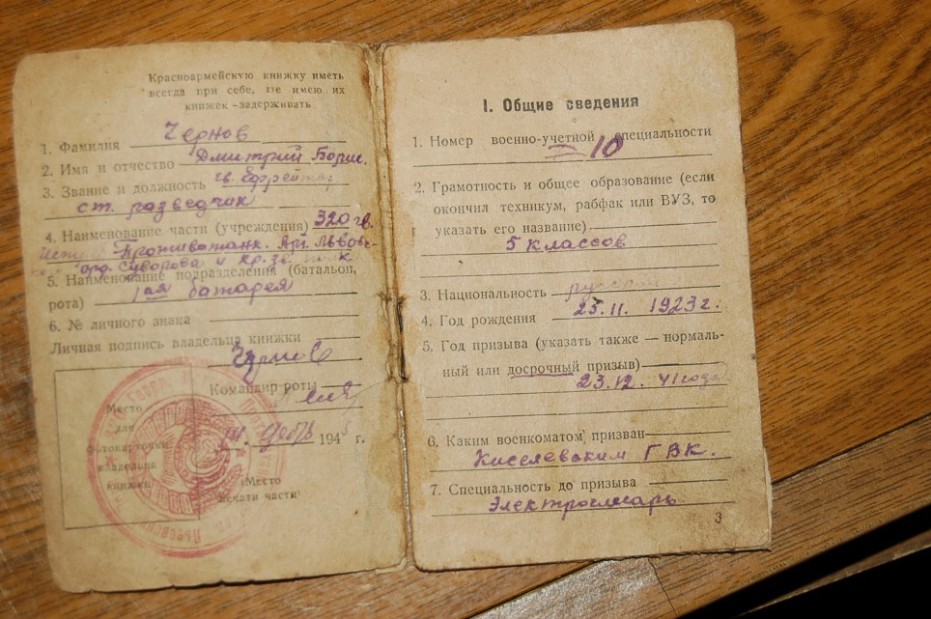 Красноармейскую книжку иметь
всегда при себе. Не имею их
книжек - задерживать
1. Фамилия Чернов
2. Имя и отчество Дмитрий Борис.
3. Звание и должность гв. Ефрейтор
ст. разведчик
4. Наименование части (учреждения) 320 гв.
Противотанк. Арт. Львовс-
орд. Суворова и Кр. Зв.
5. Наименование подразделения (батальон,
рота) 1ая батарея
6. № личного знака
Личная подпись владельца книжки
Командир роты
Место
для
фотокарточки
владельца
книжки
194 г.
Место
печати части
I. Общие сведения
1. Номер военно-учетной специальности
10
2. Грамотность и общее образование (если
окончил техникум, рабфак или ВУЗ, то
указать его название)
5 классов
3. Национальность русский
4. Год рождения 25.11. 1923 г.
5. Год призыва (указать также — нормаль-
ный или досрочный призыв)
23.12. 41 года
6. Каким военкоматом призван
Киселевским ГВК.
7. Специальность до призыва
Электрослесарь
3